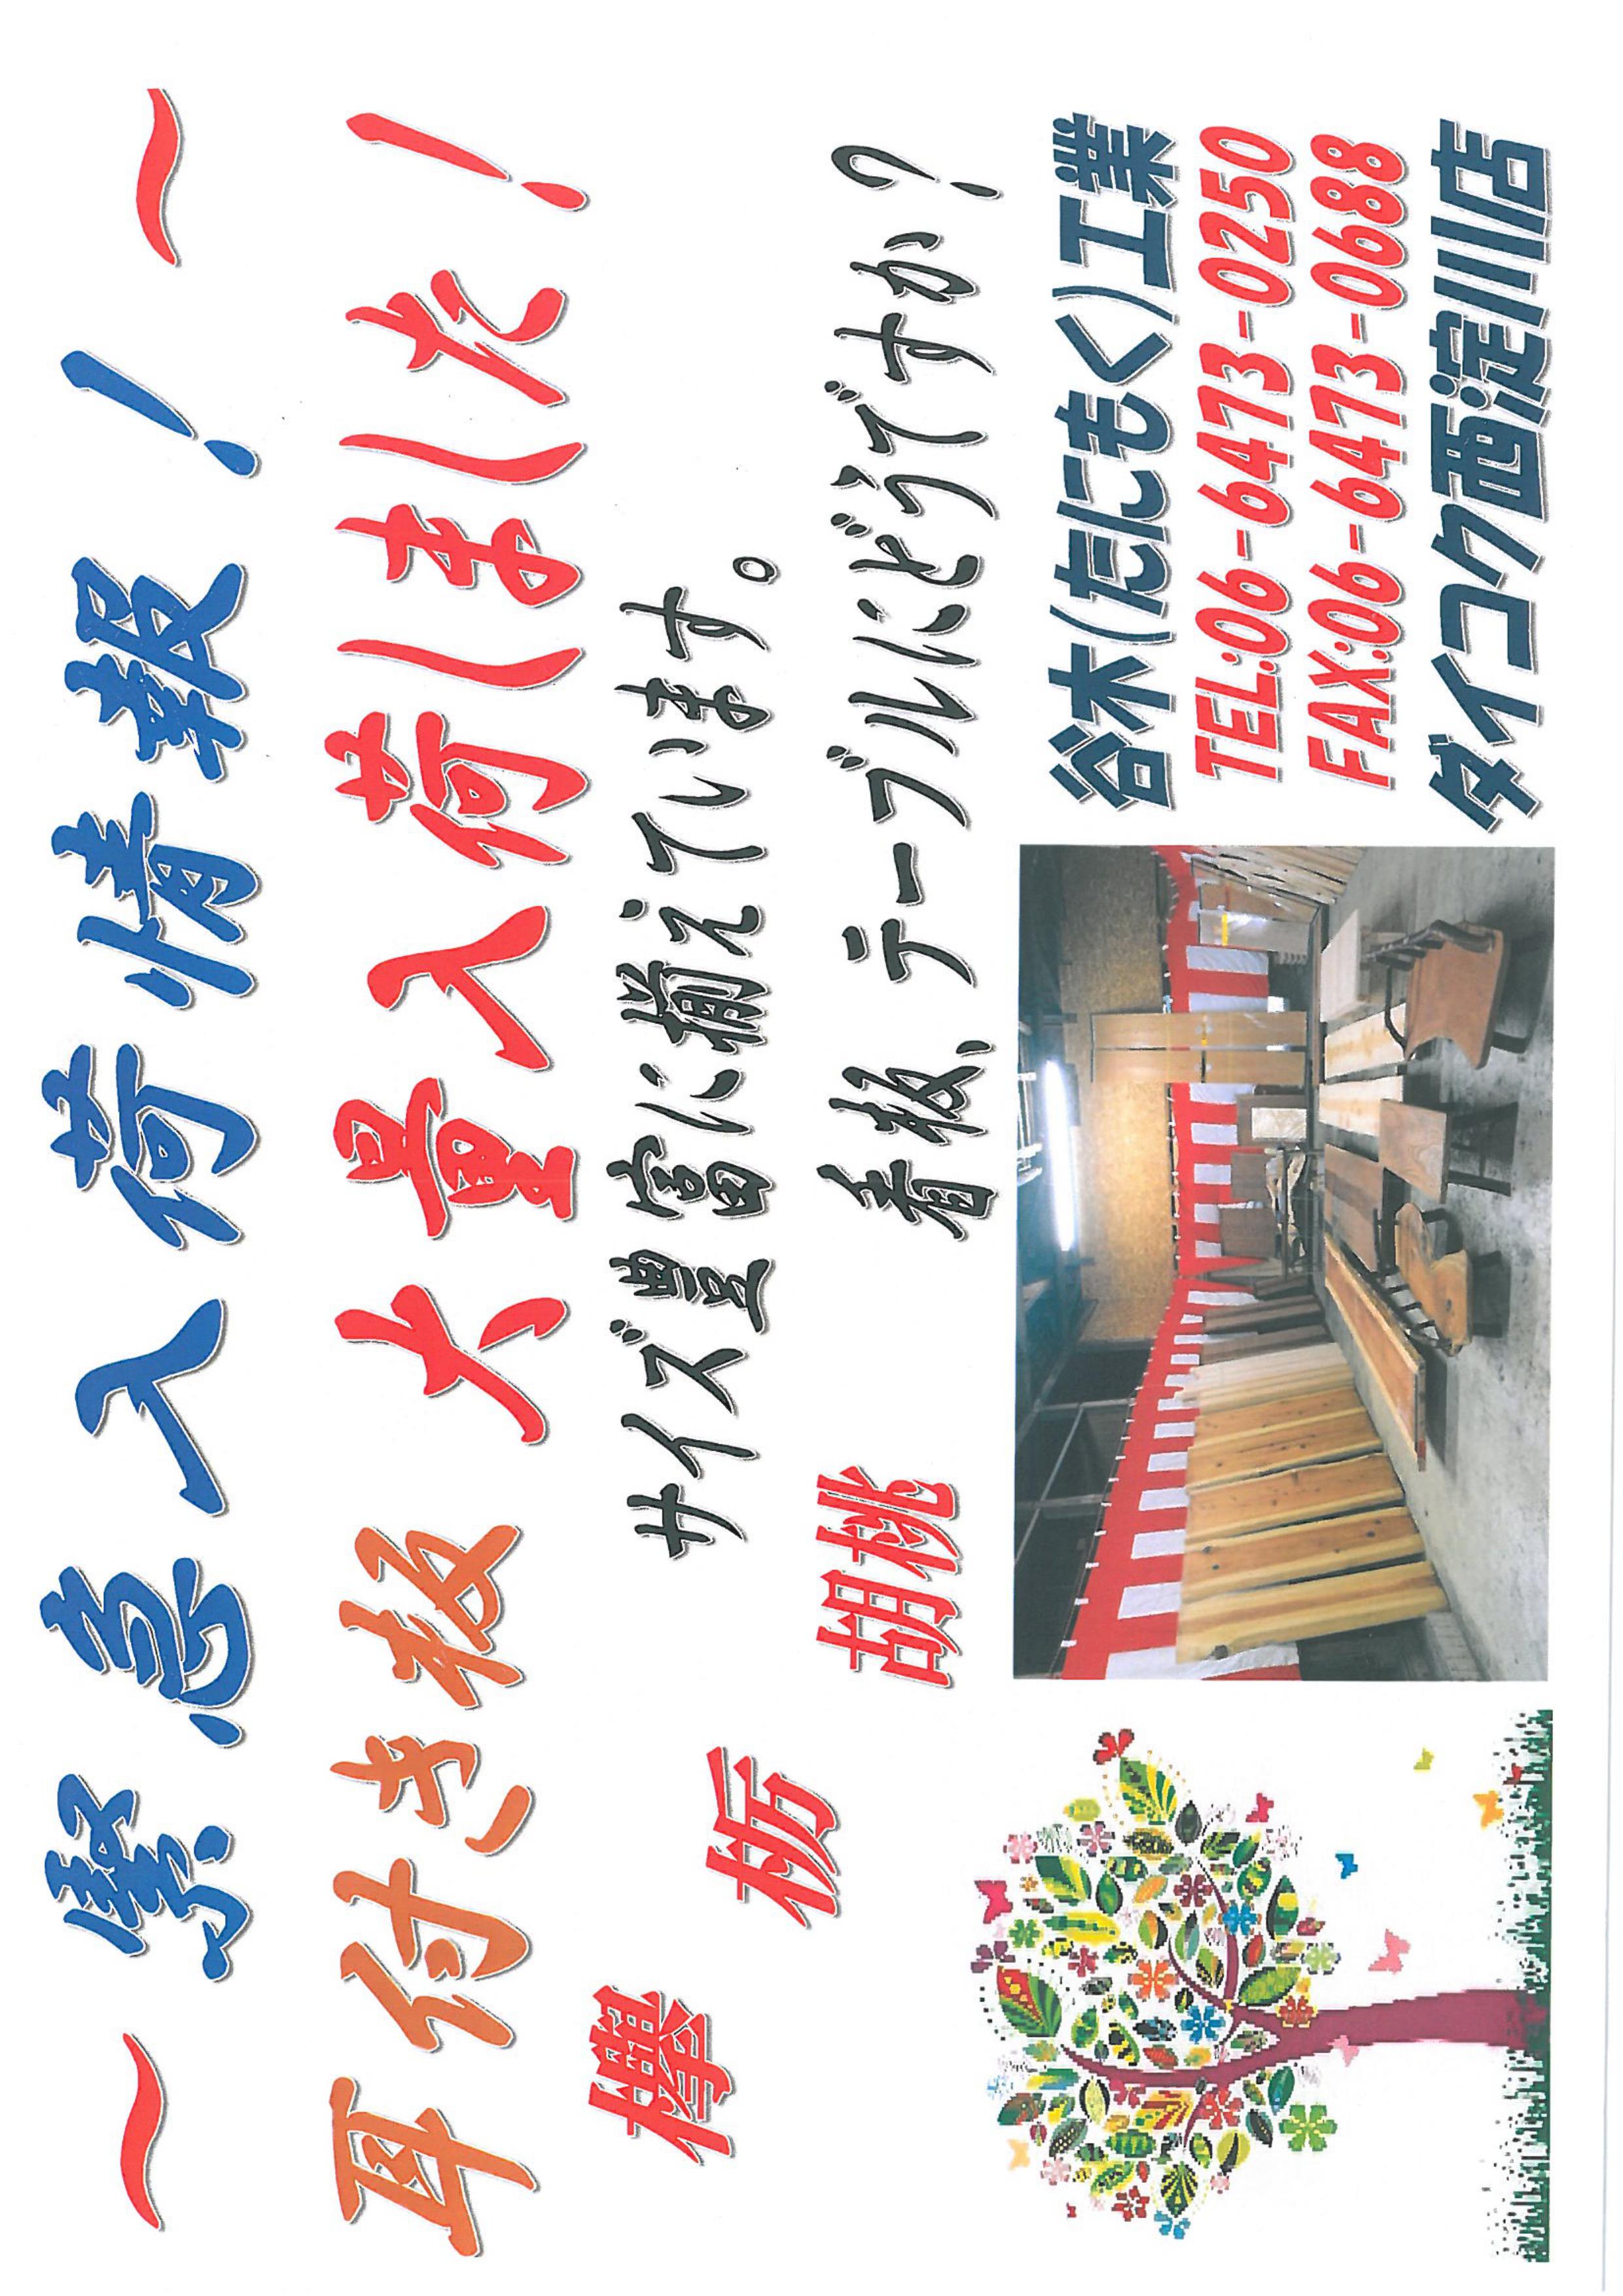 ～緊急入荷情報！～
耳付き板大量入荷しました！
サイズ豊富に揃えています。
欅
栃
胡桃
看板、テーブルにどうですか？
谷木(たにもく)工業
TEL:06-6473-0250
FAX:06-6473-0688
ダイコク西淀川店